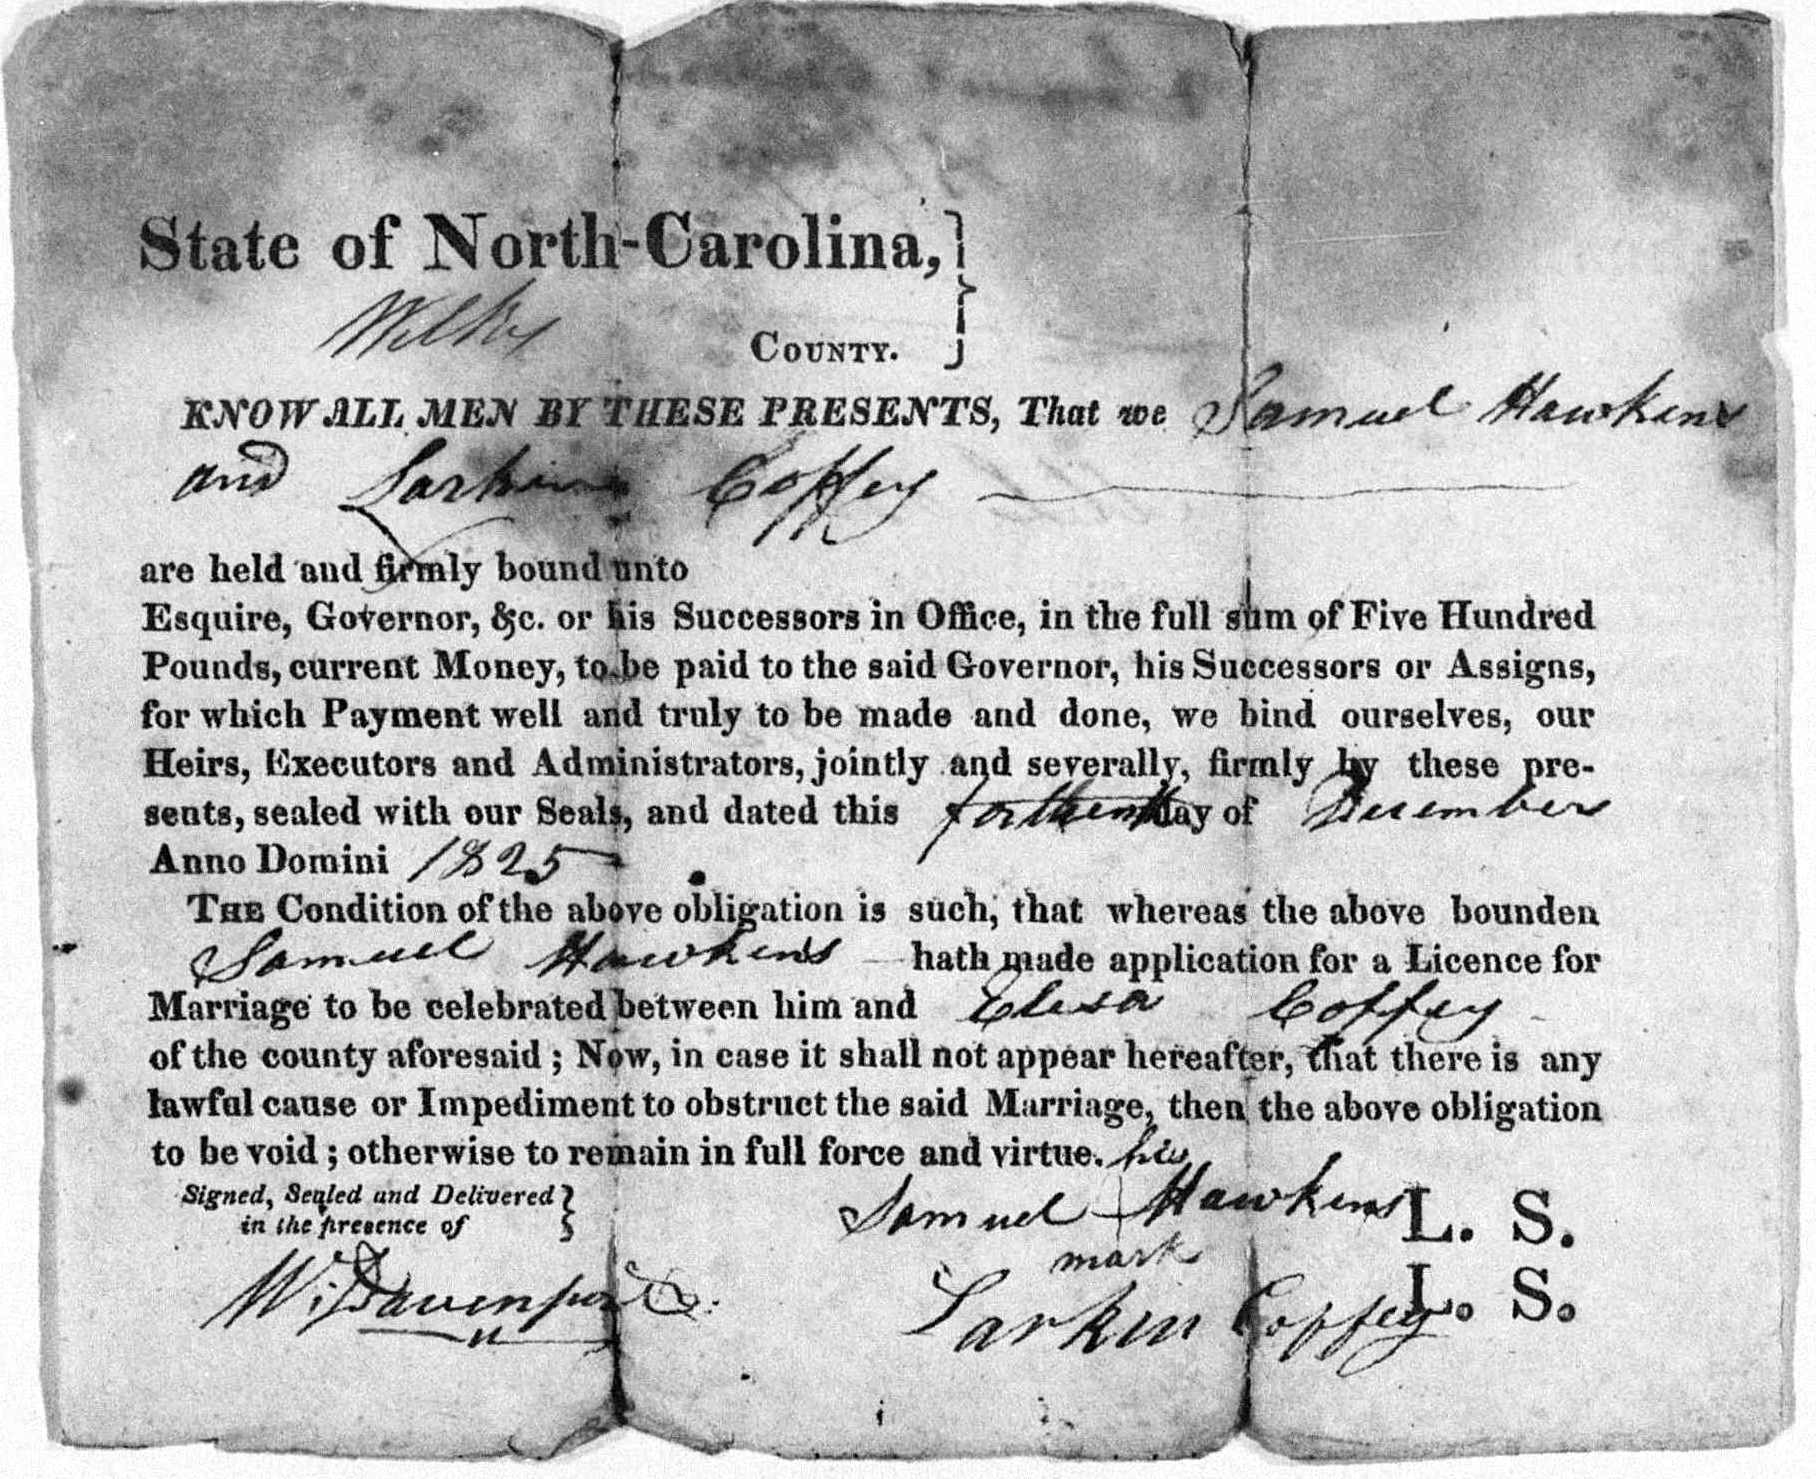 State of North-Carolina,
Wilkes
COUNTY.
KNOW ALL MEN BY THESE PRESENTS, That we Samuel Hawkens
and Larkin Coffey
are held and firmly bound unto
Esquire, Governor, &c. or his Successors in Office, in the full sum of Five Hundred
Pounds, current Money, to be paid to the said Governor, his Successors or Assigns,
for which Payment well and truly to be made and done, we bind ourselves, our
Heirs, Executors and Administrators, jointly and severally, firmly by these pre-
sents, sealed with our Seals, and dated this day of December
Anno Domini 1825
THE Condition of the above obligation is such, that whereas the above bounden
Samuel Hawkens hath made application for a Licence for
Marriage to be celebrated between him and Elisa Coffey
of the county aforesaid ; Now, in case it shall not appear hereafter, that there is any
lawful cause or Impediment to obstruct the said Marriage, then the above obligation
to be void ; otherwise to remain in full force and virtue. his
Signed, Sealed and Delivered
in the presence of
Samuel Hawkens L. S.
mark
W. Davenport
Larkin Coffey L. S.